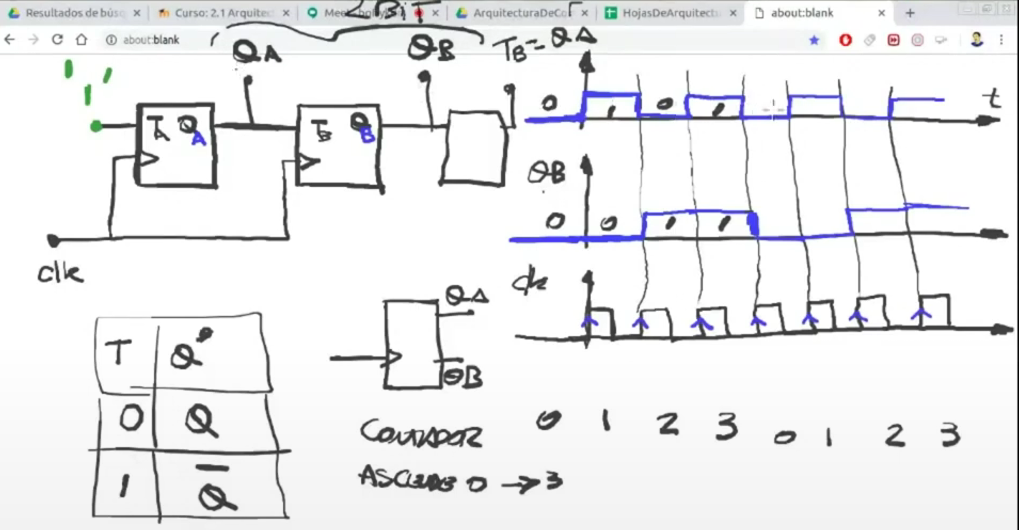 Resultados de búsq
Curso: 2.1 Arquitec
Mee
ArquitecturaDeCo
HojasDeArquitect
about:blank
about:blank
2 BIT
QA
QB
TB = QA
TA QA
TB QB
clk
0 1 0 1
t
QB
0 0 1 1
clk
T Q
0 Q
1 Q̅
QA
QB
CONTADOR
0 1 2 3 0 1 2 3
0 → 3